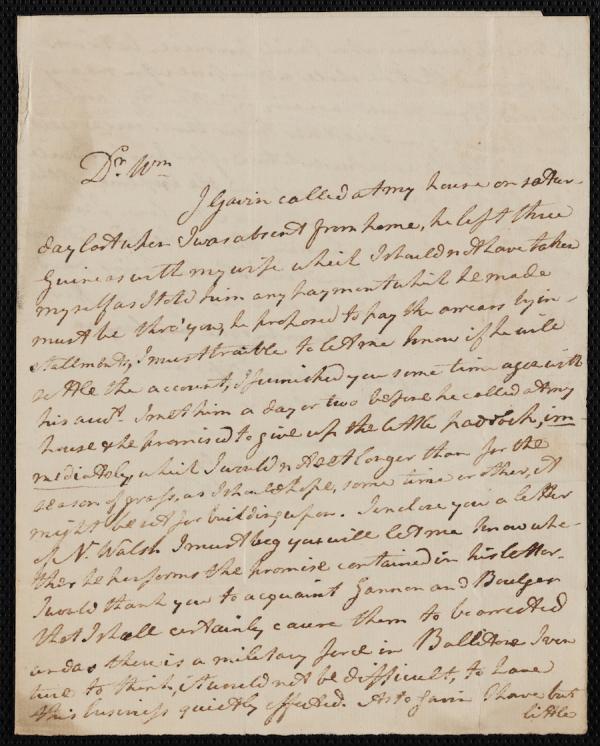 Dr. Wm
J Gavin called at my house on satur-
day last when I was absent from home, he left three
Guineas with my wife which I should not have taken
myself as I told him any payment which he made
must be thro' you, he proposed to pay the arrears by in-
stallments, I must trouble to let me know if he will
settle the account, I furnished you some time ago with
his acct. I met him a day or two before he called at my
house & he promised to give up the little paddock, im-
mediately, which I would not let longer than for the
season of grass, as I should hope, some time or other, it
might be set for building upon. I enclose you a letter
of N. Walsh I must beg you will let me know whe-
ther he performs the promise contained in his letter.
I would thank you to acquaint Gannon and Boulger
that I shall certainly cause them to be arrested
and as there is a military force in Ballitore I ven
ture to think, it would not be difficult, to have
this business quietly effected. As to Gavin I have but
little